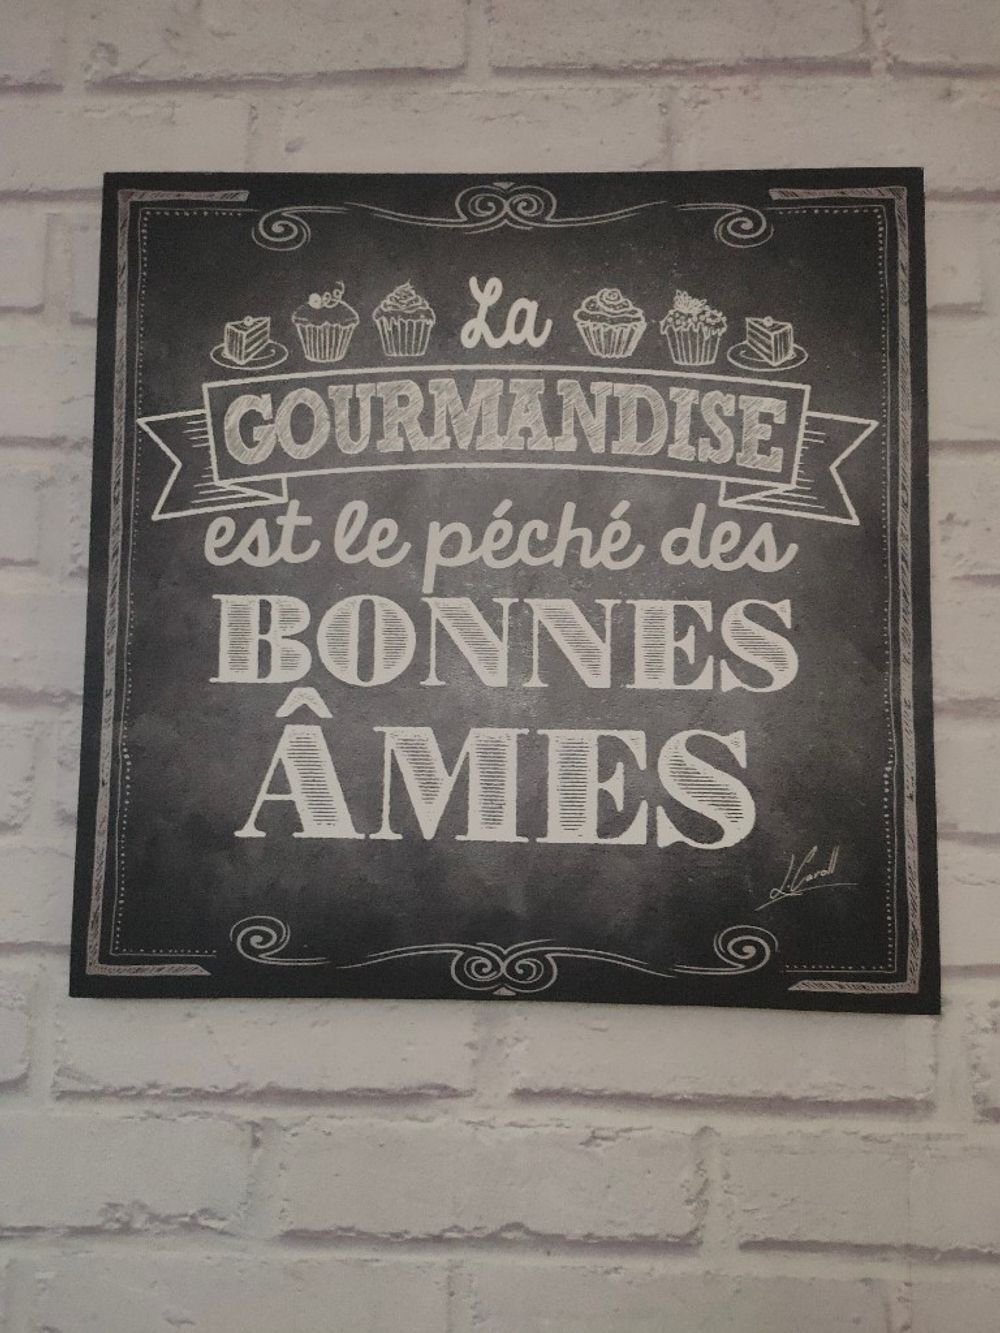 La
GOURMANDISE
est le péché des
BONNES
ÂMES
L. Caroll